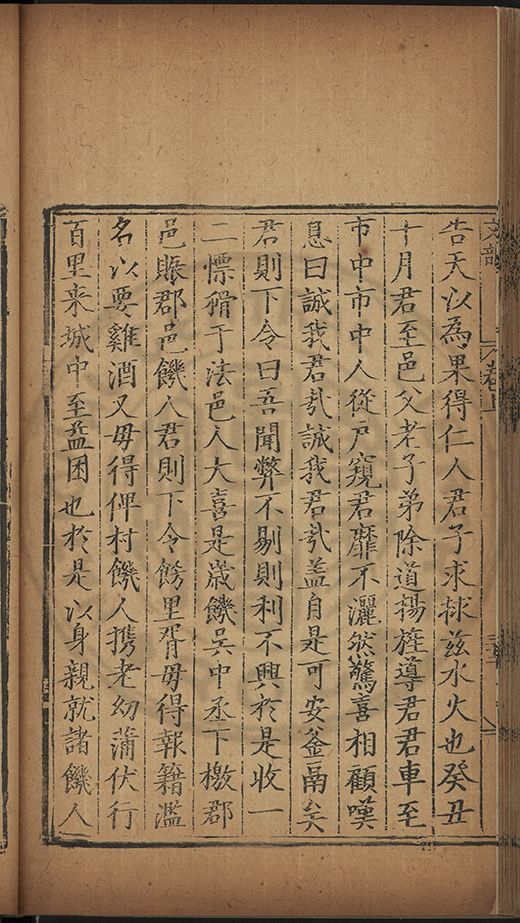 告天以為果得仁人君子求捄茲水火也癸丑
十月君至邑父老子弟除道揚旌導君君車至
市中市中人從戶窺君靡不灑然驚喜相顧嘆
息曰誠我君㢤誠我君㢤盖自是可安釜鬲矣
君則下令曰吾聞弊不剔則利不興於是收一
二慓猾于法邑人大喜是歲饑吳中丞下檄郡
邑賬郡邑饑人君則下令飭里胥毋得報籍濫
名以要雞酒又毋得俾村饑人携老幼蒲伏行
百里来城中至益困也於是以身親就諸饑人